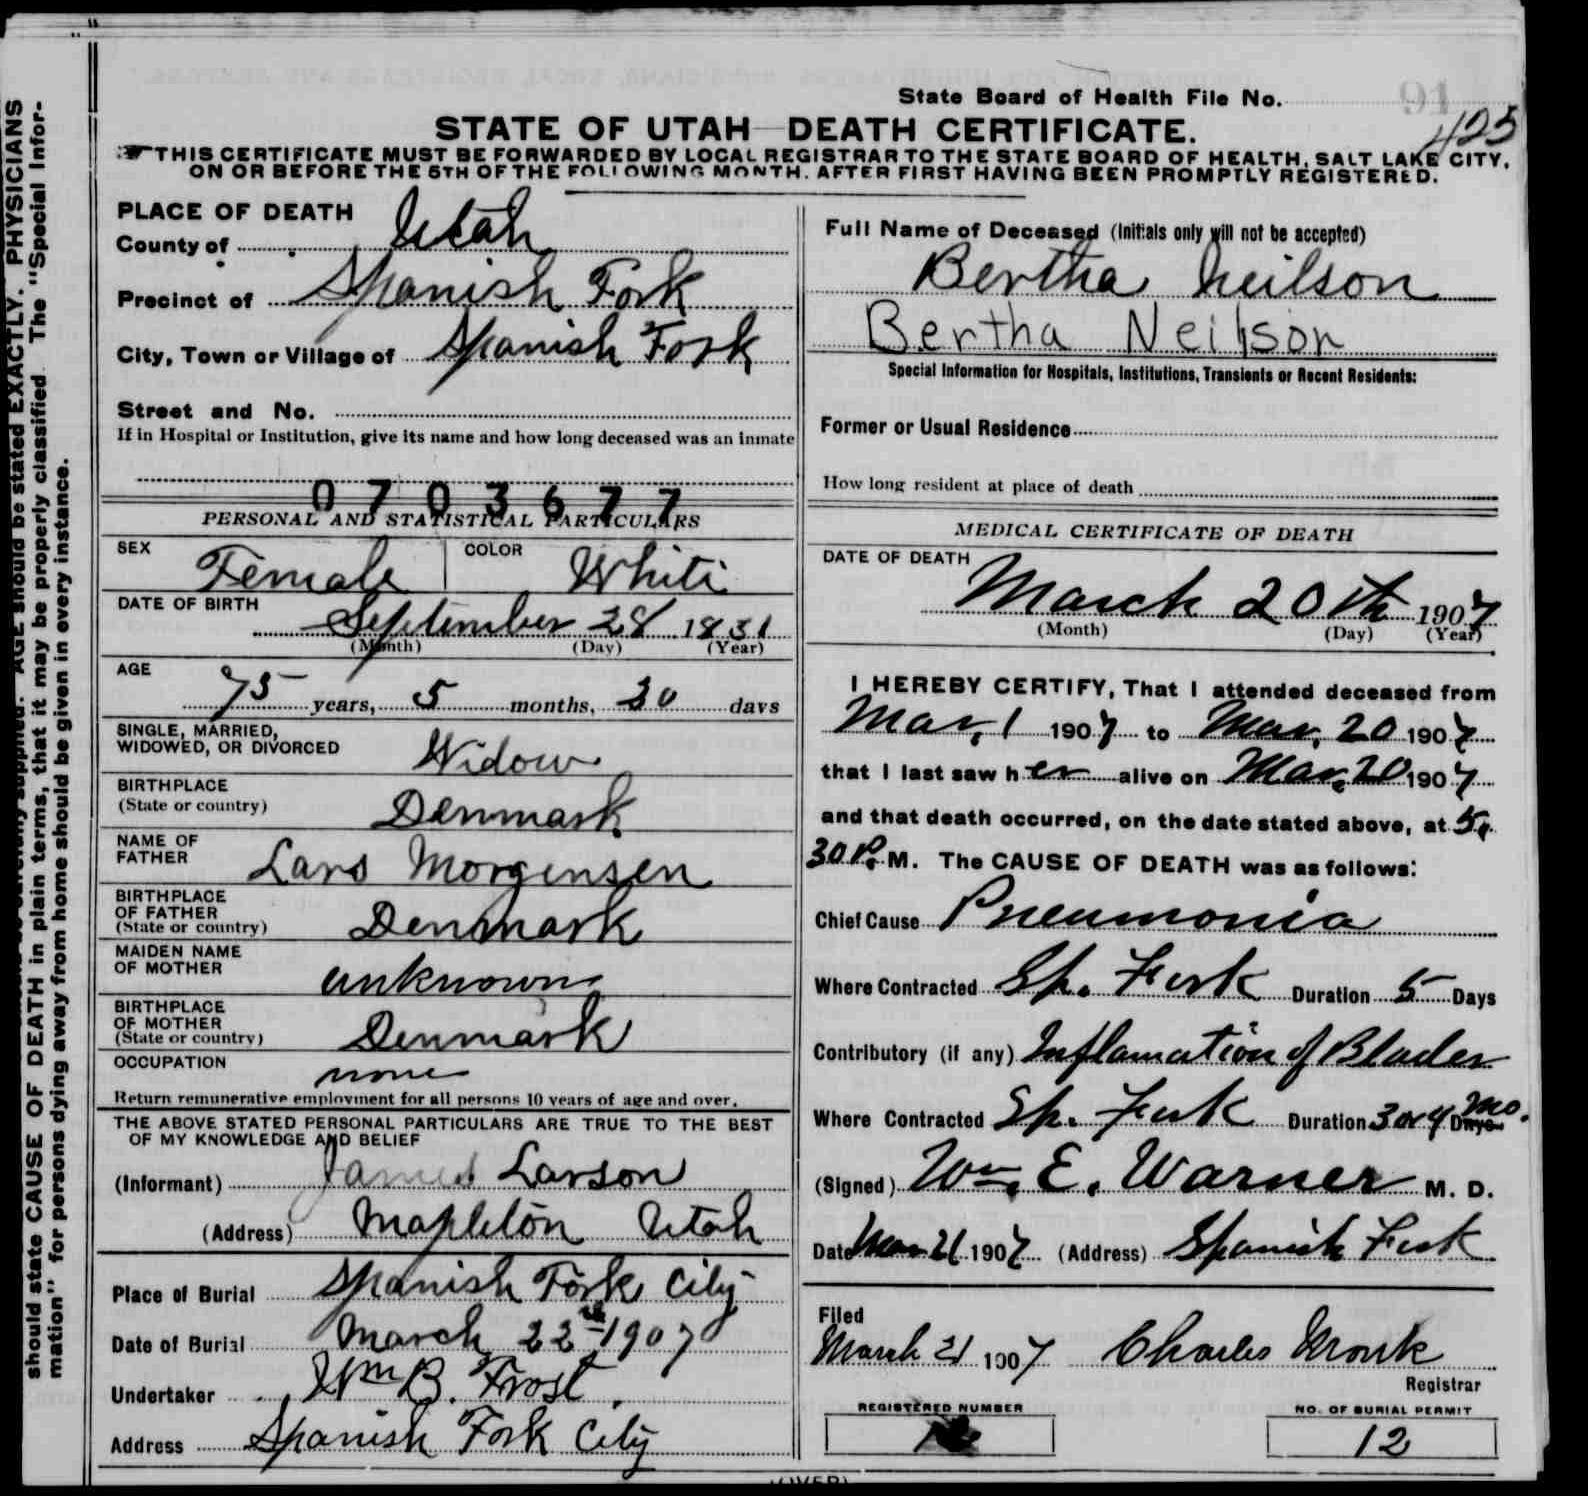 State Board of Health File No.
91
425
STATE OF UTAH—DEATH CERTIFICATE.
THIS CERTIFICATE MUST BE FORWARDED BY LOCAL REGISTRAR TO THE STATE BOARD OF HEALTH, SALT LAKE CITY,
ON OR BEFORE THE 5TH OF THE FOLLOWING MONTH, AFTER FIRST HAVING BEEN PROMPTLY REGISTERED.
PLACE OF DEATH
County of Utah
Precinct of Spanish Fork
City, Town or Village of Spanish Fork
Street and No.
If in Hospital or Institution, give its name and how long deceased was an inmate
0703677
PERSONAL AND STATISTICAL PARTICULARS
SEX Female COLOR White
DATE OF BIRTH
September 28 1831
(Month) (Day) (Year)
AGE
75 years, 5 months, 30 days
SINGLE, MARRIED,
WIDOWED, OR DIVORCED Widow
BIRTHPLACE
(State or country) Denmark
NAME OF
FATHER Lars Morgensen
BIRTHPLACE
OF FATHER
(State or country) Denmark
MAIDEN NAME
OF MOTHER unknown
BIRTHPLACE
OF MOTHER
(State or country) Denmark
OCCUPATION none
Return remunerative employment for all persons 10 years of age and over.
THE ABOVE STATED PERSONAL PARTICULARS ARE TRUE TO THE BEST
OF MY KNOWLEDGE AND BELIEF
(Informant) James Larson
(Address) Mapleton Utah
Place of Burial Spanish Fork City
Date of Burial March 22nd 1907
Undertaker Wm B. Frost
Address Spanish Fork City
Full Name of Deceased (Initials only will not be accepted)
Bertha Neilson
Bertha Neilson
Special Information for Hospitals, Institutions, Transients or Recent Residents:
Former or Usual Residence
How long resident at place of death
MEDICAL CERTIFICATE OF DEATH
DATE OF DEATH
March 20th 1907
(Month) (Day) (Year)
I HEREBY CERTIFY, That I attended deceased from
Mar, 1 1907 to Mar, 20 1907
that I last saw her alive on Mar, 20 1907
and that death occurred, on the date stated above, at 5,
30 P. M. The CAUSE OF DEATH was as follows:
Chief Cause Pneumonia
Where Contracted Sp. Fork Duration 5 Days
Contributory (if any) Inflamation of Blader
Where Contracted Sp. Fork Duration 3 or 4 Days Mo.
(Signed) Wm. E. Warner M. D.
Date Mar 21 1907 (Address) Spanish Fork
Filed
March 21 1907 Charles Monk
Registrar
REGISTERED NUMBER
NO. OF BURIAL PERMIT
12
(OVER)
AGE should be stated EXACTLY. PHYSICIANS
should state CAUSE OF DEATH in plain terms, that it may be properly classified. The "Special Infor-
mation" for persons dying away from home should be given in every instance.